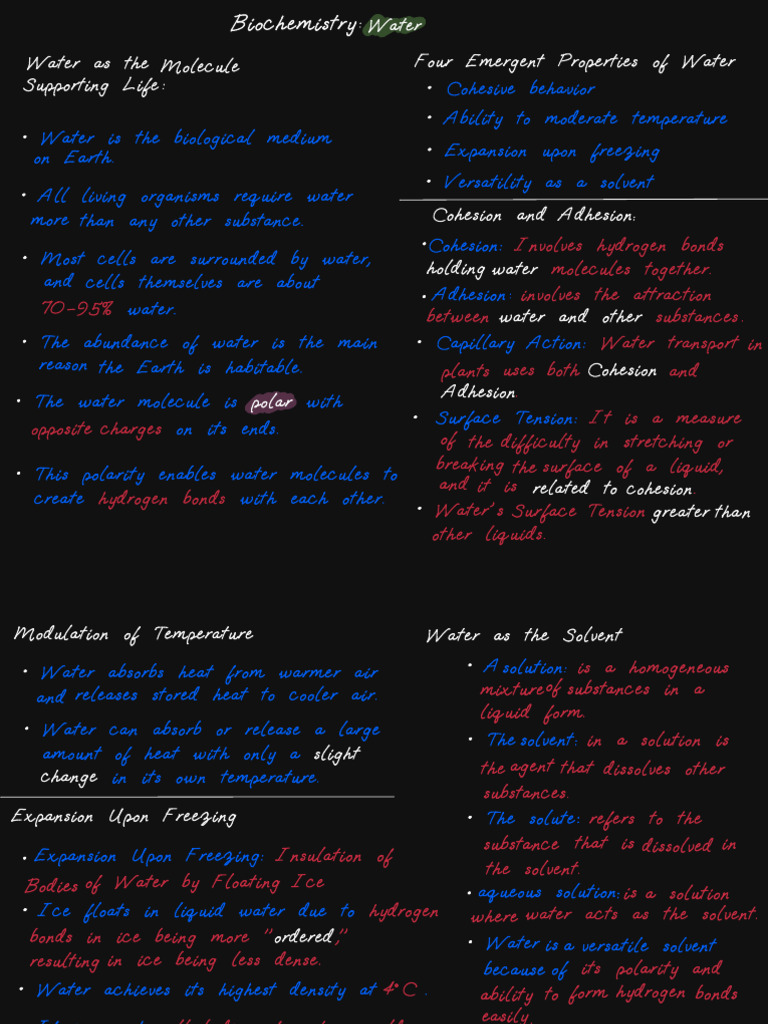 Biochemistry: Water
Water as the Molecule
Supporting Life:
• Water is the biological medium
on Earth.
• All living organisms require water
more than any other substance.
• Most cells are surrounded by water,
and cells themselves are about
70-95% water.
• The abundance of water is the main
reason the Earth is habitable.
• The water molecule is polar with
opposite charges on its ends.
• This polarity enables water molecules to
create hydrogen bonds with each other.
Four Emergent Properties of Water
• Cohesive behavior
• Ability to moderate temperature
• Expansion upon freezing
• Versatility as a solvent
Cohesion and Adhesion:
• Cohesion: Involves hydrogen bonds
holding water molecules together.
• Adhesion: involves the attraction
between water and other substances.
• Capillary Action: Water transport in
plants uses both Cohesion and
Adhesion
• Surface Tension: It is a measure
of the difficulty in stretching or
breaking the surface of a liquid,
and it is related to cohesion.
• Water's Surface Tension greater than
other liquids.
Modulation of Temperature
• Water absorbs heat from warmer air
and releases stored heat to cooler air.
• Water can absorb or release a large
amount of heat with only a slight
change in its own temperature.
Expansion Upon Freezing
• Expansion Upon Freezing: Insulation of
Bodies of Water by Floating Ice
• Ice floats in liquid water due to hydrogen
bonds in ice being more "ordered,"
resulting in ice being less dense.
• Water achieves its highest density at 4°C.
Water as the Solvent
• A solution: is a homogeneous
mixture of substances in a
liquid form.
• The solvent: in a solution is
the agent that dissolves other
substances.
• The solute: refers to the
substance that is dissolved in
the solvent.
• aqueous solution: is a solution
where water acts as the solvent.
• Water is a versatile solvent
because of its polarity and
ability to form hydrogen bonds
easily.